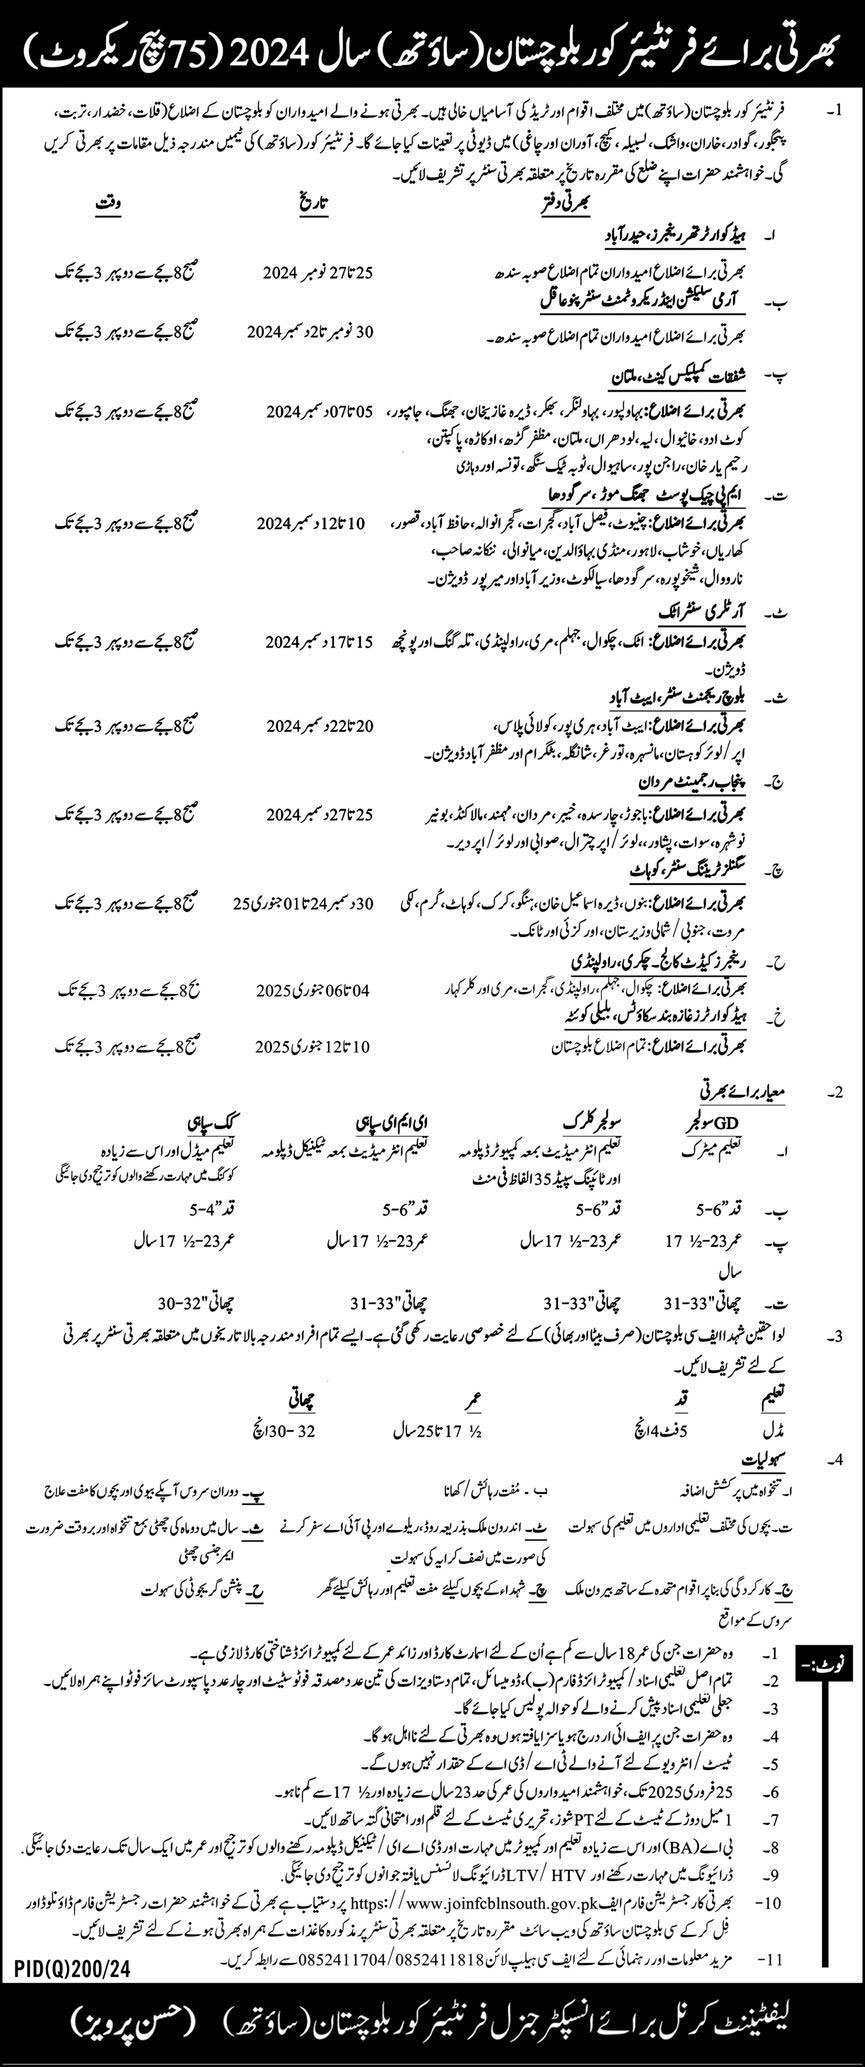 بھرتی برائے فرنٹیئر کور بلوچستان (ساؤتھ) سال 2024 (75 بیچ ریکروٹ)
1- فرنٹیئر کور بلوچستان (ساؤتھ) میں مختلف اقوام اور ٹریڈ کی آسامیاں خالی ہیں۔ بھرتی ہونے والے امیدواران کو بلوچستان کے اضلاع (قلات، خضدار، تربت،
پنجگور، گوادر، خاران، واشک، لسبیلہ، کیچ، آوران اور چاغی) میں ڈیوٹی پر تعینات کیا جائے گا۔ فرنٹیئر کور (ساؤتھ) کی ٹیمیں مندرجہ ذیل مقامات پر بھرتی کریں
گی۔ خواہشمند حضرات اپنے ضلع کی مقررہ تاریخ پر متعلقہ بھرتی سنٹر پر تشریف لائیں۔
بھرتی دفتر تاریخ وقت
ا۔ ہیڈ کوارٹر تھر رینجرز، حیدر آباد
بھرتی برائے اضلاع امیدواران تمام اضلاع صوبہ سندھ 25 تا 27 نومبر 2024 صبح 8 بجے سے دوپہر 3 بجے تک
ب۔ آرمی سلیکشن اینڈ ریکروٹمنٹ سنٹر پنوعاقل
بھرتی برائے اضلاع امیدواران تمام اضلاع صوبہ سندھ۔ 30 نومبر تا 2 دسمبر 2024 صبح 8 بجے سے دوپہر 3 بجے تک
پ۔ شفقات کمپلیکس کینٹ، ملتان
بھرتی برائے اضلاع: بہاولپور، بہاولنگر، بھکر، ڈیرہ غازیخان، جھنگ، جامپور، 05 تا 07 دسمبر 2024 صبح 8 بجے سے دوپہر 3 بجے تک
کوٹ ادو، خانیوال، لیہ، لودھراں، ملتان، مظفر گڑھ، اوکاڑہ، پاکپتن،
رحیم یار خان، راجن پور، ساہیوال، ٹوبہ ٹیک سنگھ، تونسہ اور وہاڑی
ت۔ ایم پی چیک پوسٹ جھنگ موڑ، سرگودھا
بھرتی برائے اضلاع: چنیوٹ، فیصل آباد، گجرات، گجرانوالہ، حافظ آباد، قصور، 10 تا 12 دسمبر 2024 صبح 8 بجے سے دوپہر 3 بجے تک
کھاریاں، خوشاب، لاہور، منڈی بہاؤالدین، میانوالی، ننکانہ صاحب،
نارووال، شیخوپورہ، سرگودھا، سیالکوٹ، وزیر آباد اور میر پور ڈویژن۔
ٹ۔ آرٹلری سنٹر اٹک
بھرتی برائے اضلاع: اٹک، چکوال، جہلم، مری، راولپنڈی، تلہ گنگ اور پونچھ 15 تا 17 دسمبر 2024 صبح 8 بجے سے دوپہر 3 بجے تک
ڈویژن۔
ث۔ بلوچ ریجمنٹ سنٹر، ایبٹ آباد
بھرتی برائے اضلاع: ایبٹ آباد، ہری پور، کولائی پلاس، 20 تا 22 دسمبر 2024 صبح 8 بجے سے دوپہر 3 بجے تک
اپر/لوئر کوہستان، مانسہرہ، تورغر، شانگلہ، بٹگرام اور مظفر آباد ڈویژن۔
ج۔ پنجاب رجمینٹ مردان
بھرتی برائے اضلاع: باجوڑ، چارسدہ، خیبر، مردان، مہمند، مالاکنڈ، بونیر 25 تا 27 دسمبر 2024 صبح 8 بجے سے دوپہر 3 بجے تک
نوشہرہ، سوات، پشاور، لوئر/اپر چترال، صوابی اور لوئر/اپر دیر۔
چ۔ سگنلز ٹریننگ سنٹر، کوہاٹ
بھرتی برائے اضلاع: بنوں، ڈیرہ اسماعیل خان، ہنگو، کرک، کوہاٹ، کُرم، لکی 30 دسمبر 24 تا 01 جنوری 25 صبح 8 بجے سے دوپہر 3 بجے تک
مروت، جنوبی/شمالی وزیرستان، اورکزئی اور ٹانک۔
ح۔ رینجرز کیڈٹ کالج۔ چکری، راولپنڈی
بھرتی برائے اضلاع: چکوال، جہلم، راولپنڈی، گجرات، مری اور کلر کہار 04 تا 06 جنوری 2025 بج 8 بجے سے دوپہر 3 بجے تک
خ۔ ہیڈ کوارٹرز غازہ بند سکاؤٹس، بلیلی کوئٹہ
بھرتی برائے اضلاع: تمام اضلاع بلوچستان 10 تا 12 جنوری 2025 صبح 8 بجے سے دوپہر 3 بجے تک
2- معیار برائے بھرتی
GD سولجر سولجر کلرک ای ایم ای سپاہی کک سپاہی
ا۔ تعلیم میٹرک تعلیم انٹر میڈیٹ بمعہ کمپیوٹر ڈپلومہ تعلیم انٹر میڈیٹ بمعہ ٹیکنیکل ڈپلومہ تعلیم میڈل اور اس سے زیادہ
اور ٹائپنگ سپیڈ 35 الفاظ فی منٹ کوکنگ میں مہارت رکھنے والوں کو ترجیح دی جائیگی
ب۔ قد "6-5 قد "6-5 قد "6-5 قد "4-5
پ۔ عمر 23-½ 17 عمر 23-½ 17 سال عمر 23-½ 17 سال عمر 23-½ 17 سال
سال
ت۔ چھاتی "33-31 چھاتی "33-31 چھاتی "33-31 چھاتی "32-30
3- لواحقین شہدا ایف سی بلوچستان (صرف بیٹا اور بھائی) کے لئے خصوصی رعایت رکھی گئی ہے۔ ایسے تمام افراد مندرجہ بالا تاریخوں میں متعلقہ بھرتی سنٹر پر بھرتی
کے لئے تشریف لائیں۔
تعلیم قد عمر چھاتی
مڈل 5 فٹ 4 انچ ½ 17 تا 25 سال 32 -30 انچ
4- سہولیات
ا۔ تنخواہ میں پرکشش اضافہ ب۔ مُفت رہائش/کھانا پ۔ دوران سروس آپکے بیوی اور بچوں کا مفت علاج
ت۔ بچوں کی مختلف تعلیمی اداروں میں تعلیم کی سہولت ٹ۔ اندرون ملک بذریعہ روڈ، ریلوے اور پی آئی اے سفر کرنے ث۔ سال میں دو ماہ کی چھٹی بمع تنخواہ اور بروقت ضرورت
کی صورت میں نصف کرایہ کی سہولت ایمرجنسی چھٹی
ج۔ کارکردگی کی بنا پر اقوام متحدہ کے ساتھ بیرون ملک چ۔ شہداء کے بچوں کیلئے مفت تعلیم اور رہائش کیلئے گھر ح۔ پنشن گریجوٹی کی سہولت
سروس کے مواقع
نوٹ:-
1- وہ حضرات جن کی عمر 18 سال سے کم ہے اُن کے لئے اسمارٹ کارڈ اور زائد عمر کے لئے کمپیوٹرائزڈ شناختی کارڈ لازمی ہے۔
2- تمام اصل تعلیمی اسناد/کمپیوٹرائزڈ فارم (ب)، ڈومیسائل، تمام دستاویزات کی تین عدد مصدقہ فوٹوسٹیٹ اور چار عدد پاسپورٹ سائز فوٹو اپنے ہمراہ لائیں۔
3- جعلی تعلیمی اسناد پیش کرنے والے کو حوالہ پولیس کیا جائے گا۔
4- وہ حضرات جن پر ایف آئی ار درج ہو یا سزا یافتہ ہوں وہ بھرتی کے لئے نااہل ہو گا۔
5- ٹیسٹ/انٹرویو کے لئے آنے والے ٹی اے/ڈی اے کے حقدار نہیں ہوں گے۔
6- 25 فروری 2025 تک، خواہشمند امیدواروں کی عمر کی حد 23 سال سے زیادہ اور ½ 17 سے کم نا ہو۔
7- 1 میل دوڑ کے ٹیسٹ کے لئے PT شوز، تحریری ٹیسٹ کے لئے قلم اور امتحانی گتہ ساتھ لائیں۔
8- بی اے (BA) اور اس سے زیادہ تعلیم اور کمپیوٹر میں مہارت اور ڈی اے ای/ٹیکنیکل ڈپلومہ رکھنے والوں کو ترجیح اور عمر میں ایک سال تک رعایت دی جائیگی۔
9- ڈرائیونگ میں مہارت رکھنے اور LTV/ HTV ڈرائیونگ لائسنس یافتہ جوانوں کو ترجیح دی جائیگی۔
10- بھرتی کا رجسٹریشن فارم ایف https://www.joinfcblnsouth.gov.pk پر دستیاب ہے بھرتی کے خواہشمند حضرات رجسٹریشن فارم ڈاؤنلوڈ اور
فِل کر کے سی بلوچستان ساؤتھ کی ویب سائٹ مقررہ تاریخ پر متعلقہ بھرتی سنٹر پر مذکورہ کاغذات کے ہمراہ بھرتی ہونے کے لئے تشریف لائیں۔
11- مزید معلومات اور رہنمائی کے لئے ایف سی ہیلپ لائن 0852411704/0852411818 سے رابطہ کریں۔
PID(Q)200/24
لیفٹیننٹ کرنل برائے انسپکٹر جنرل فرنٹیئر کور بلوچستان (ساؤتھ) (حسن پرویز)